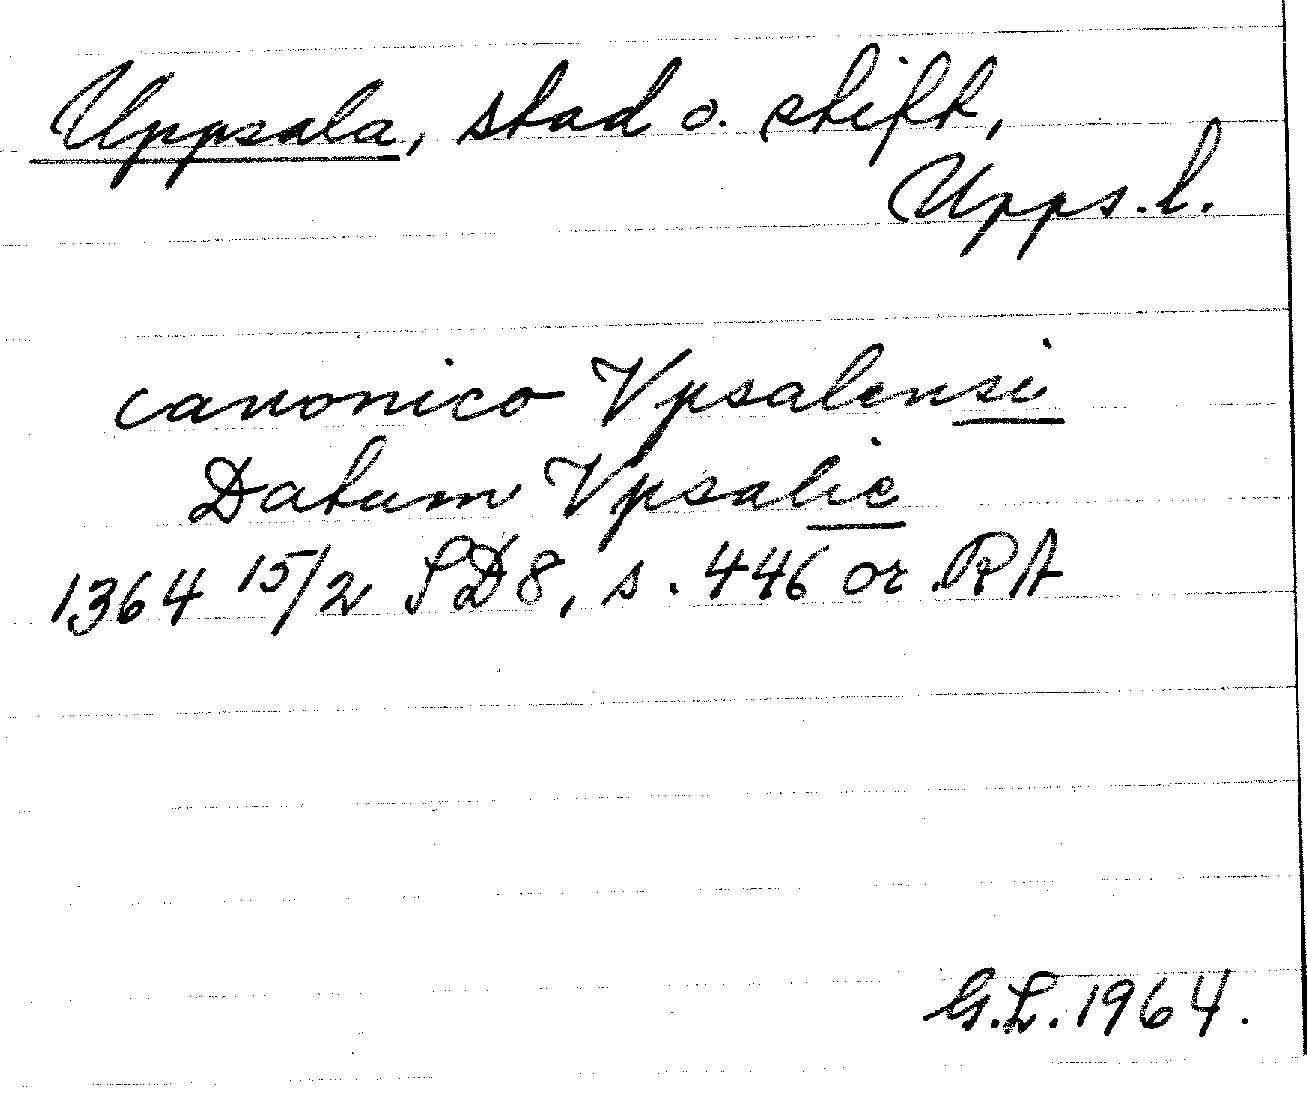 Uppsala, stad o. stift,
Upps.l.
canonico Vpsalensi
Datum Vpsalie
1364 15/2 SD8, s. 446 or RA
G.L. 1964.